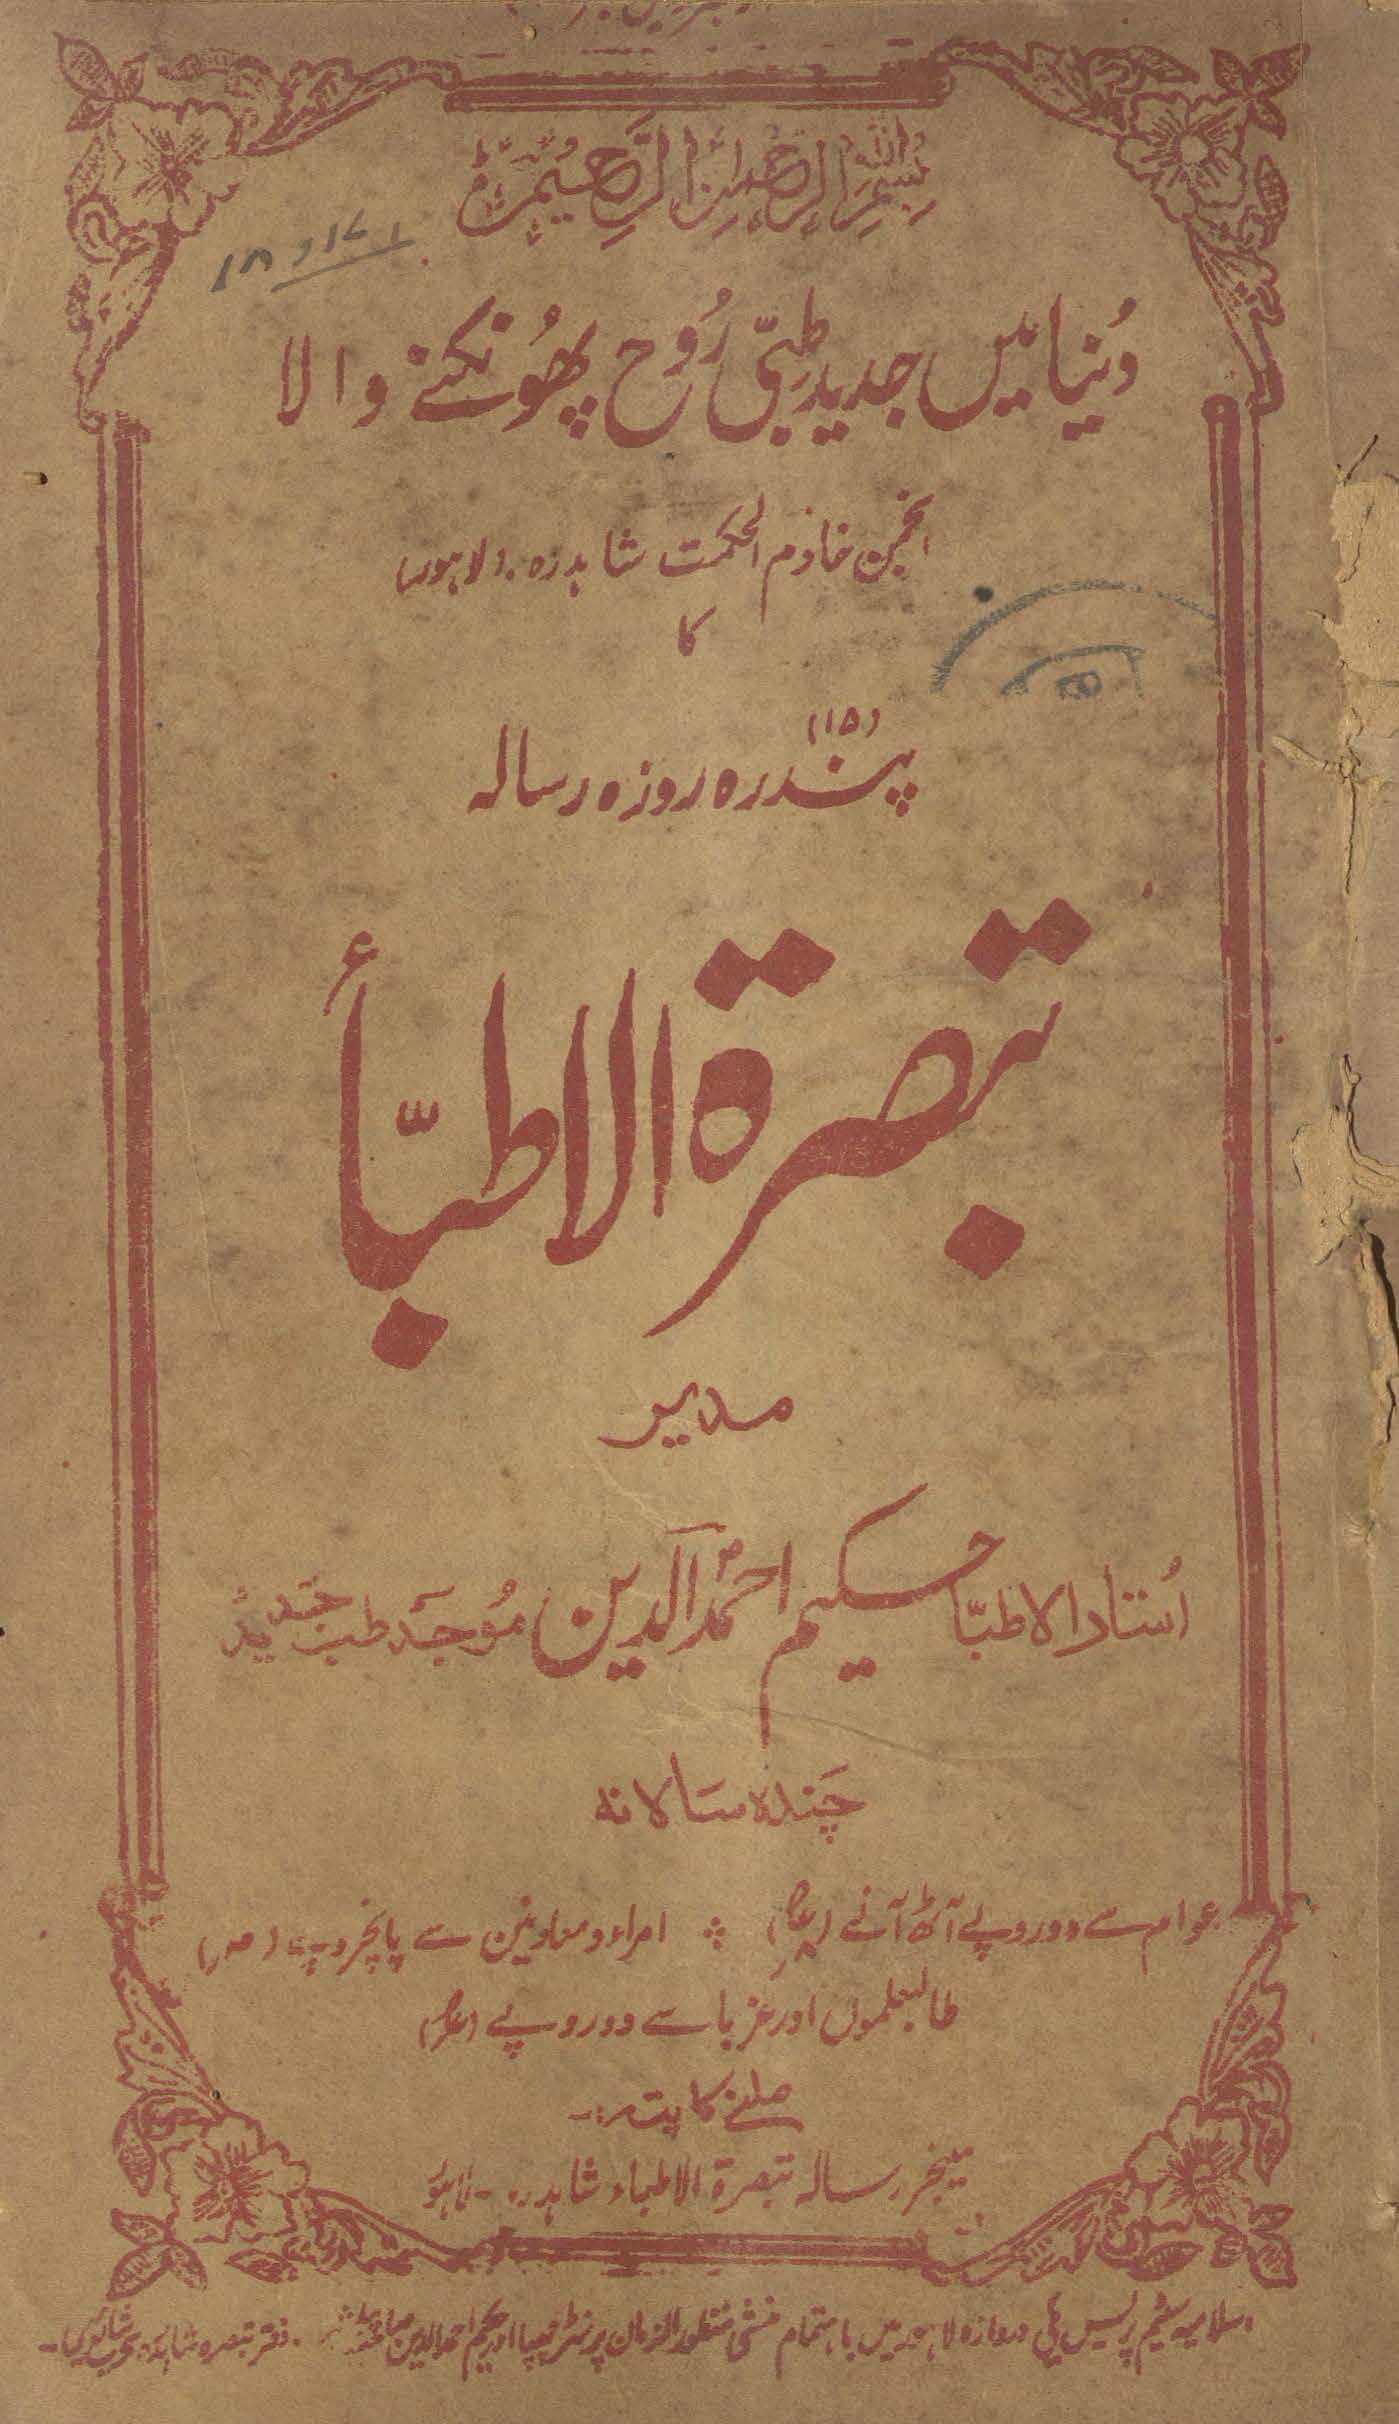 بسم الله الرحمن الرحیم
دُنیا میں جدید طِبّی رُوح پھُونکنے والا
انجمن خادم الحکمت شاہدرہ (لاہور)
کا
(۱۵)
پندرہ روزہ رسالہ
تبصرۃ الاطبّأ
مدیر
اُستاد الاطبّا حکیم احمد الدین مُوجد طب جدید
چندہ سالانہ
عوام سے دو روپے آٹھ آنے ؞ امراء و معاونین سے پانچ روپے
طالبعلموں اور غربا سے دو روپے
ملنے کا پتہ :-
مینجر رسالہ تبصرۃ الاطباء شاہدرہ - لاہور
اسلامیہ سٹیم پریس دروازہ لاہور میں باہتمام منشی منظور الزمان پرنٹر چھپا اور حکیم احمد الدین دفتر تبصرہ شاہدرہ